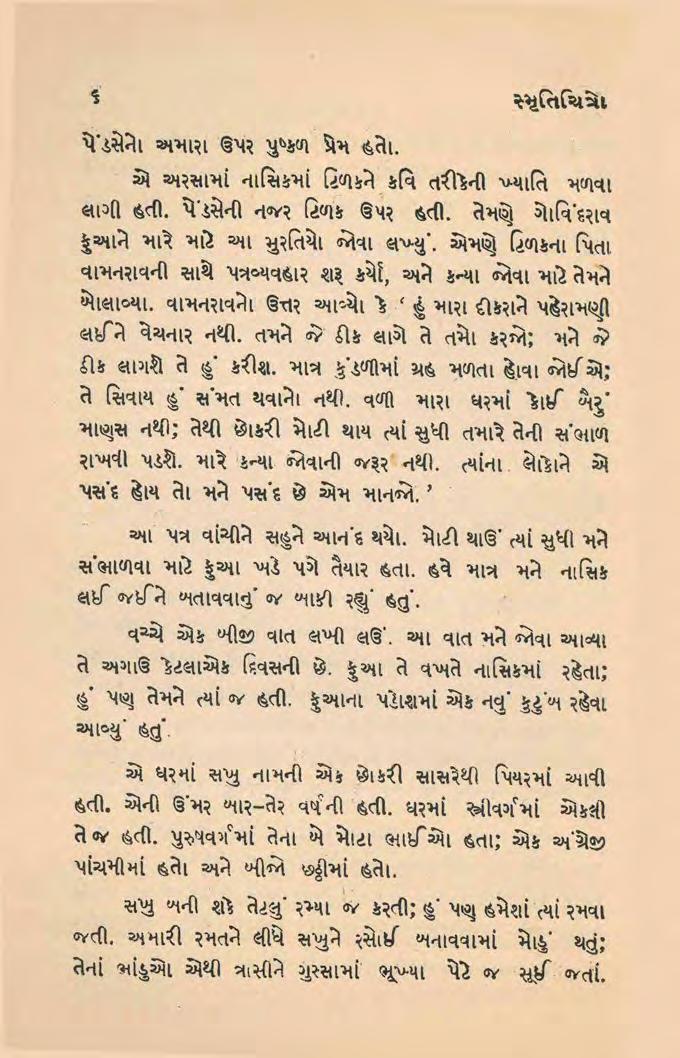 ૬
સ્મૃતિચિત્રો
પેંડસેનો અમારા ઉપર પુષ્કળ પ્રેમ હતો.
એ અરસામાં નાસિકમાં ટિળકને કવિ તરીકેની ખ્યાતિ મળવા
લાગી હતી. પેંડસેની નજર ટિળક ઉપર હતી. તેમણે ગોવિંદરાવ
ફુઆને મારે માટે આ મુરતિયો જોવા લખ્યું. એમણે ટિળકના પિતા
વામનરાવની સાથે પત્રવ્યવહાર શરૂ કર્યો, અને કન્યા જોવા માટે તેમને
બોલાવ્યા. વામનરાવનો ઉત્તર આવ્યો કે ‘ હું મારા દીકરાને પહેરામણી
લઈને વેચનાર નથી. તમને જે ઠીક લાગે તે તમો કરજો; મને જે
ઠીક લાગશે તે હું કરીશ. માત્ર કુંડળીમાં ગ્રહ મળતા હોવા જોઈએ;
તે સિવાય હું સંમત થવાનો નથી. વળી મારા ઘરમાં કોઈ બૈરું
માણસ નથી; તેથી છોકરી મોટી થાય ત્યાં સુધી તમારે તેની સંભાળ
રાખવી પડશે. મારે કન્યા જોવાની જરૂર નથી. ત્યાંના લોકોને એ
પસંદ હોય તો મને પસંદ છે એમ માનજો. ’
આ પત્ર વાંચીને સહુને આનંદ થયો. મોટી થાઉં ત્યાં સુધી મને
સંભાળવા માટે ફુઆ ખડે પગે તૈયાર હતા. હવે માત્ર મને નાસિક
લઈ જઈને બતાવવાનું જ બાકી રહ્યું હતું.
વચ્ચે એક બીજી વાત લખી લઉં. આ વાત મને જોવા આવ્યા
તે અગાઉ કેટલાએક દિવસની છે. ફુઆ તે વખતે નાસિકમાં રહેતા;
હું પણ તેમને ત્યાં જ હતી. ફુઆના પડોશમાં એક નવું કુટુંબ રહેવા
આવ્યું હતું.
એ ઘરમાં સખુ નામની એક છોકરી સાસરેથી પિયરમાં આવી
હતી. એની ઉંમર બાર–તેર વર્ષની હતી. ઘરમાં સ્ત્રીવર્ગમાં એકલી
તે જ હતી. પુરુષવર્ગમાં તેના બે મોટા ભાઈઓ હતા; એક અંગ્રેજી
પાંચમીમાં હતો અને બીજો છઠ્ઠીમાં હતો.
સખુ બની શકે તેટલું રમ્યા જ કરતી; હું પણ હમેશાં ત્યાં રમવા
જતી. અમારી રમતને લીધે સખુને રસોઈ બનાવવામાં મોડું થતું;
તેનાં ભાંડુઓ એથી ત્રાસીને ગુસ્સામાં ભૂખ્યા પેટે જ સૂઈ જતાં.